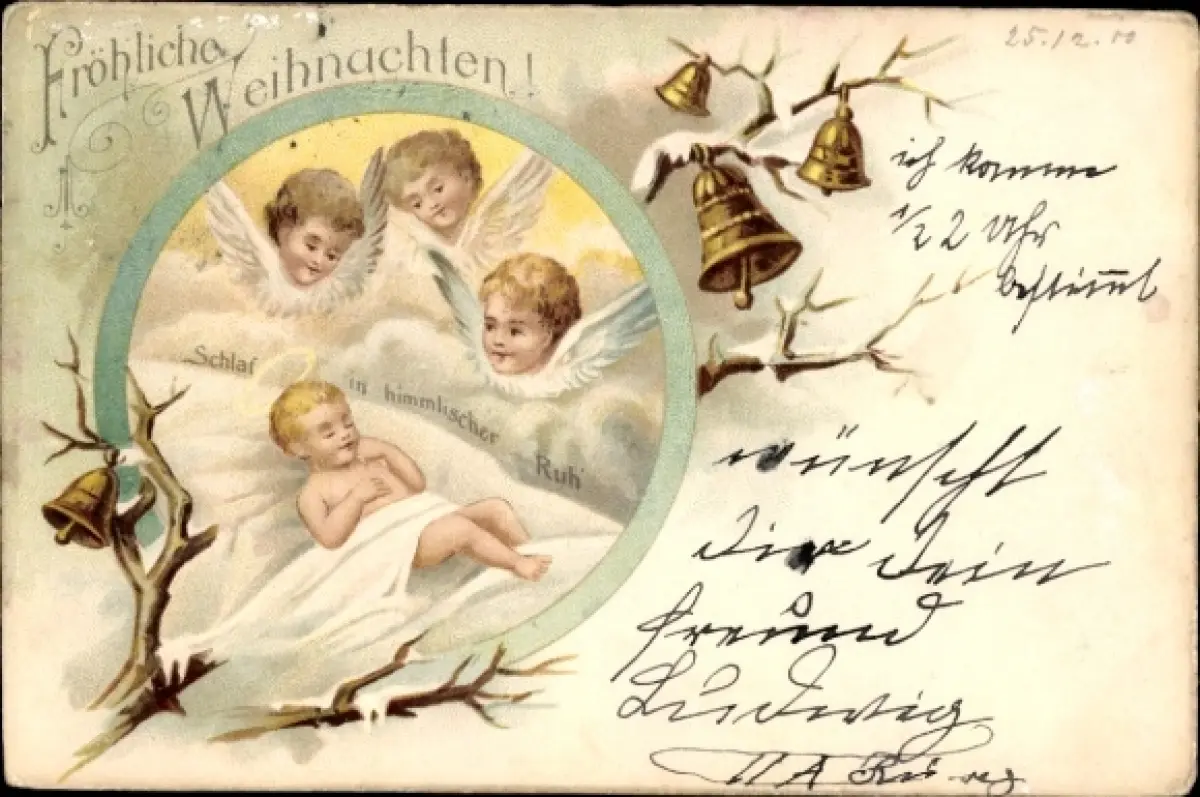 Fröhliche
Weihnachten!
25.12.00
ich komme
1/2 2 Uhr
bestimmt
Schlaf in himmlischer Ruh'
wünscht
Dir Dein
Freund
Ludwig